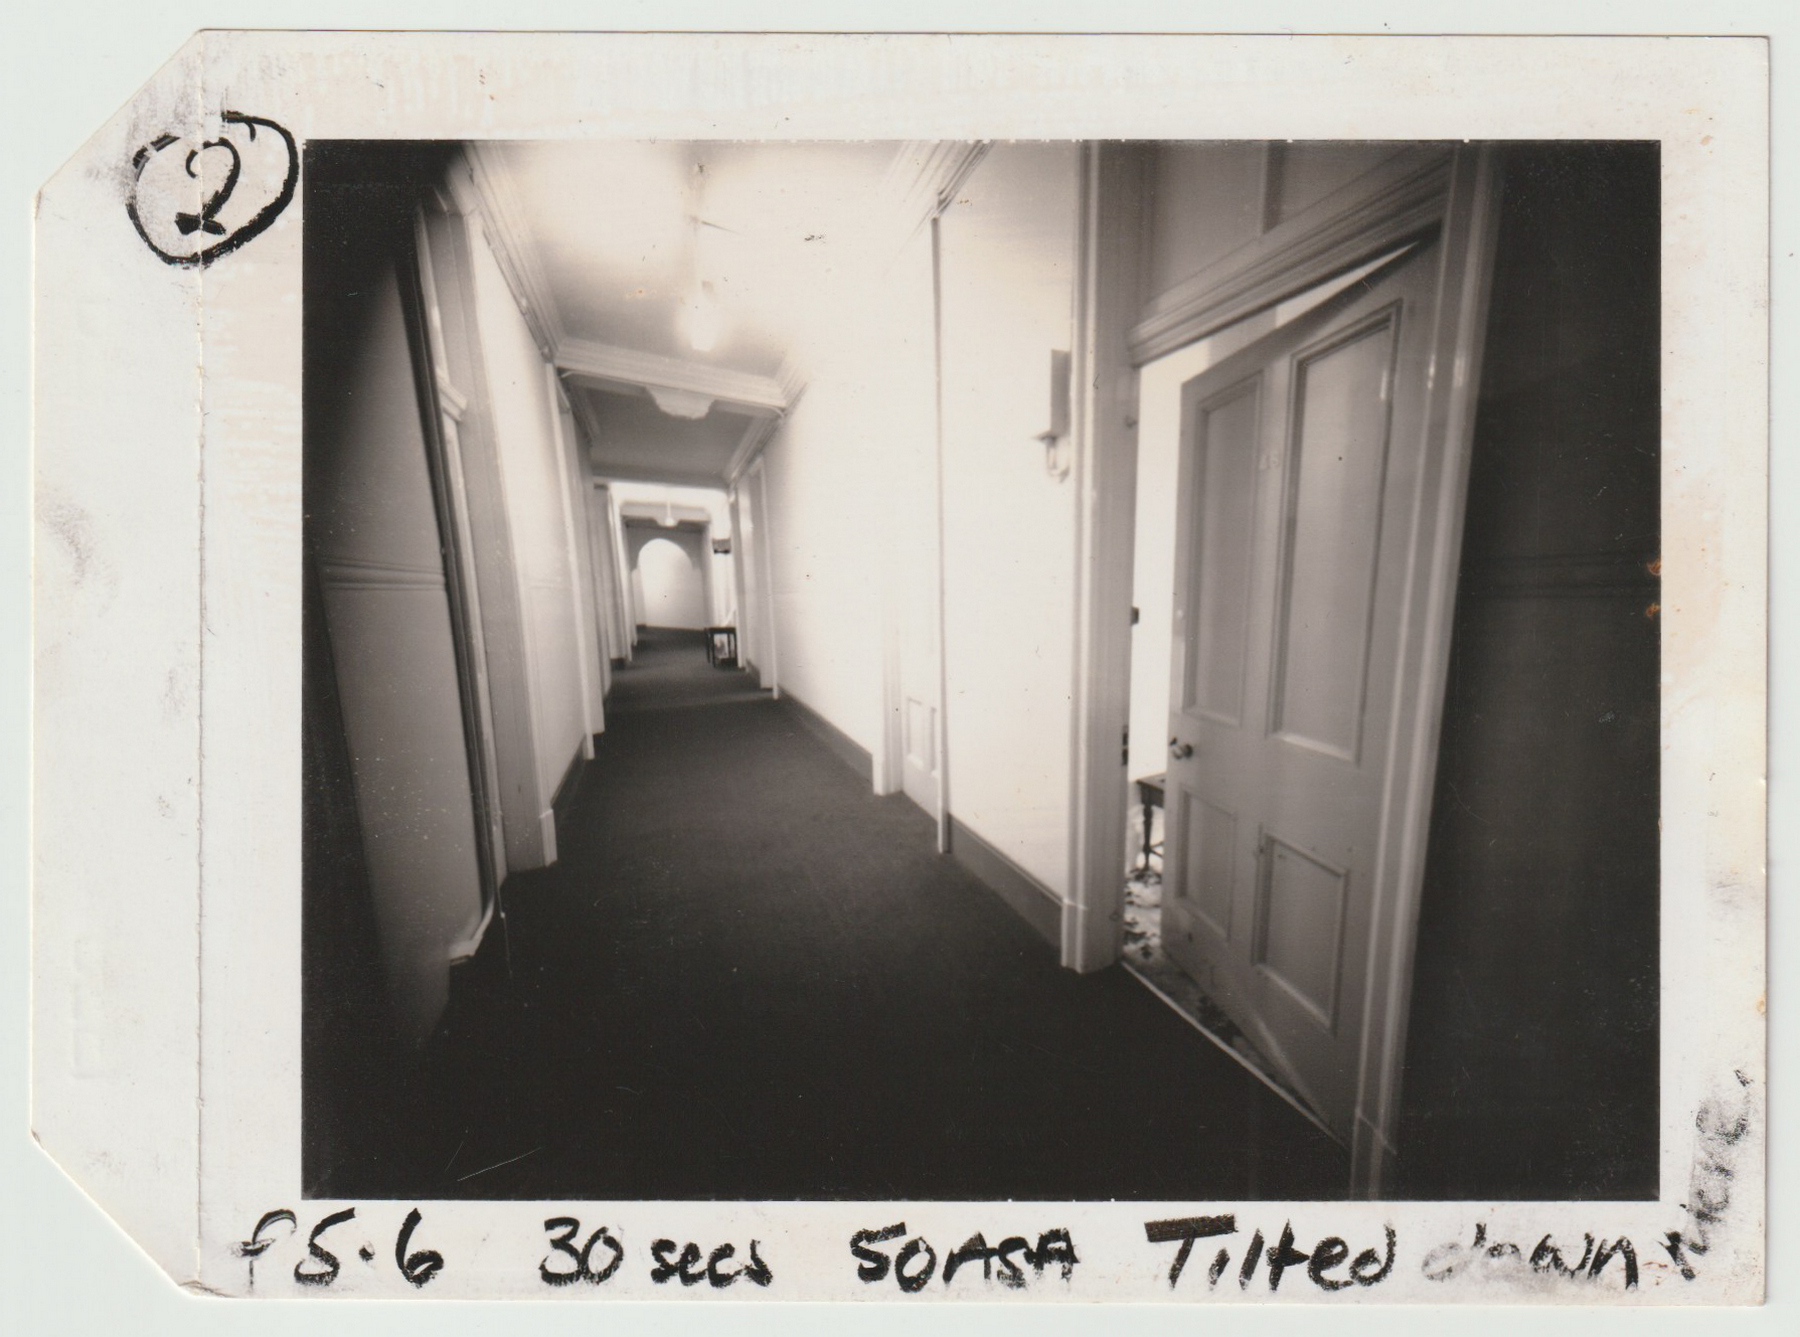 2
f5.6 30 secs 50ASA Tilted down
more.